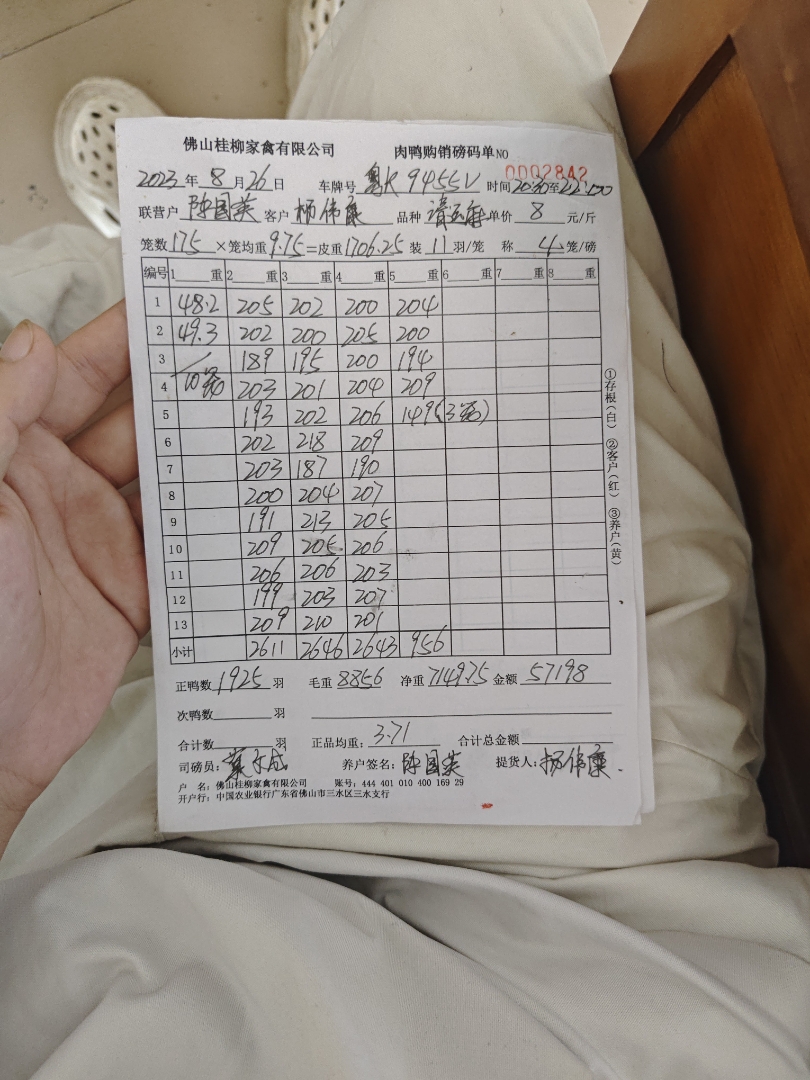 佛山桂柳家禽有限公司 肉鸭购销磅码单NO 0002842
2023年8月26日 车牌号 粤K 9455V 时间20:30至22:00
联营户 陈国英 客户 杨伟康 品种 单价 8 元/斤
笼数175×笼均重9.75=皮重1706.25 装 11 羽/笼 称 4 笼/磅
编号 1 重 2 重 3 重 4 重 5 重 6 重 7 重 8 重
1 48.2 205 202 200 204
2 49.3 202 200 205 200
3 189 195 200 194
4 10笼 203 201 204 209
5 193 202 206 149(3笼)
6 202 218 209
7 203 187 190
8 200 204 207
9 191 213 205
10 209 205 206
11 206 206 203
12 199 203 207
13 209 210 201
小计 2611 2646 2643 956
①存根(白) ②客户(红) ③养户(黄)
正鸭数 1925 羽 毛重 8856 净重 7149.75 金额 57198
次鸭数 羽
合计数 羽 正品均重: 3.71 合计总金额
司磅员: 养户签名: 陈国英 提货人: 杨伟康.
户 名: 佛山桂柳家禽有限公司 账号: 444 401 010 400 169 29
开户行: 中国农业银行广东省佛山市三水区三水支行